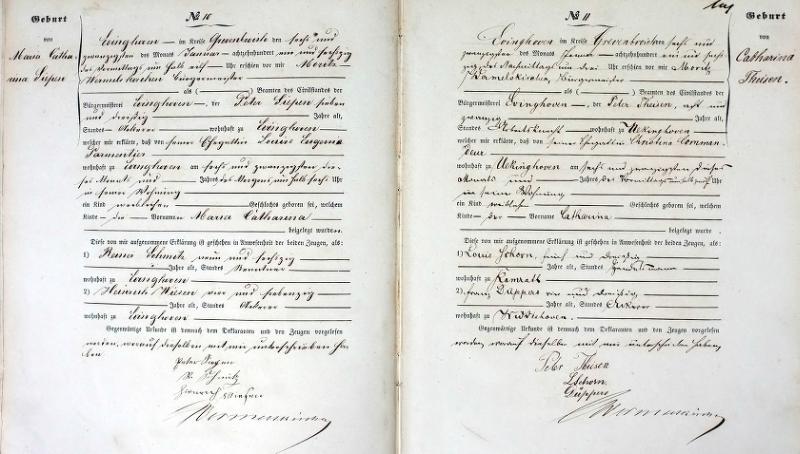 Geburt
von
Maria Catha-
rina Siepen
№ 10
Evinghoven — im Kreise Grevenbroich den sechs und
zwanzigsten des Monats Januar — achtzehnhundert ein und sechzig
des Vormittags um halb elf — Uhr erschien vor mir Moritz
Bürgermeister
als ( ) Beamten des Civilstandes der
Bürgermeisterei Evinghoven —, der Peter Siepen sieben
und dreißig — Jahre alt,
Standes Ackerer — wohnhaft zu Evinghoven
welcher mir erklärte, daß von seiner Ehegattin Louise Eugenia
Parmentier
wohnhaft zu Evinghoven am sechs und zwanzigsten die-
ses Monats und — Jahres des Morgens um halb sechs Uhr
in seiner Wohnung
ein Kind weiblichen — Geschlechts geboren sei, welchem
Kinde — die — Vornamen Maria Catharina
beigelegt wurden.
Diese von mir aufgenommene Erklärung ist geschehen in Anwesenheit der beiden Zeugen, als:
1) Schmitz neun und sechzig
Jahre alt, Standes Rentner
wohnhaft zu Evinghoven
2) Heinrich vier und siebenzig
Jahre alt, Standes Ackerer
wohnhaft zu Evinghoven
Gegenwärtige Urkunde ist demnach dem Deklaranten und den Zeugen vorgelesen
worden, worauf dieselben mit mir unterschrieben ha-
ben
Peter Siepen
Schmitz
Heinrich
Wermelskirchen
№ 11
Evinghoven — im Kreise Grevenbroich den sechs und
zwanzigsten des Monats Januar — achtzehnhundert ein und sech-
zig des Nachmittags um drei Uhr erschien vor mir Moritz
Wermelskirchen, Bürgermeister
als ( ) Beamten des Civilstandes der
Bürgermeisterei Evinghoven —, der Peter Theisen, acht und
zwanzig — Jahre alt,
Standes Ackersknecht — wohnhaft zu Ueckinghoven
welcher mir erklärte, daß von seiner Ehegattin Christina
wohnhaft zu Ueckinghoven am sechs und zwanzigsten dieses
Monats und — Jahres des Vormittags um Uhr
in seiner Wohnung
ein Kind weiblichen — Geschlechts geboren sei, welchem
Kinde — der — Vorname Catharina
beigelegt wurde
Diese von mir aufgenommene Erklärung ist geschehen in Anwesenheit der beiden Zeugen, als:
1) Louis Schorn, und dreißig
Jahre alt, Standes Handelsmann
wohnhaft zu
2) Franz Düppers vier und dreißig
Jahre alt, Standes Ackerer
wohnhaft zu Widdeshoven
Gegenwärtige Urkunde ist demnach dem Deklaranten und den Zeugen vorgelesen
worden, worauf dieselben mit mir unterschrieben haben,
Peter Theisen
LSchorn
Düppers
Wermelskirchen
Geburt
von
Catharina
Theisen.